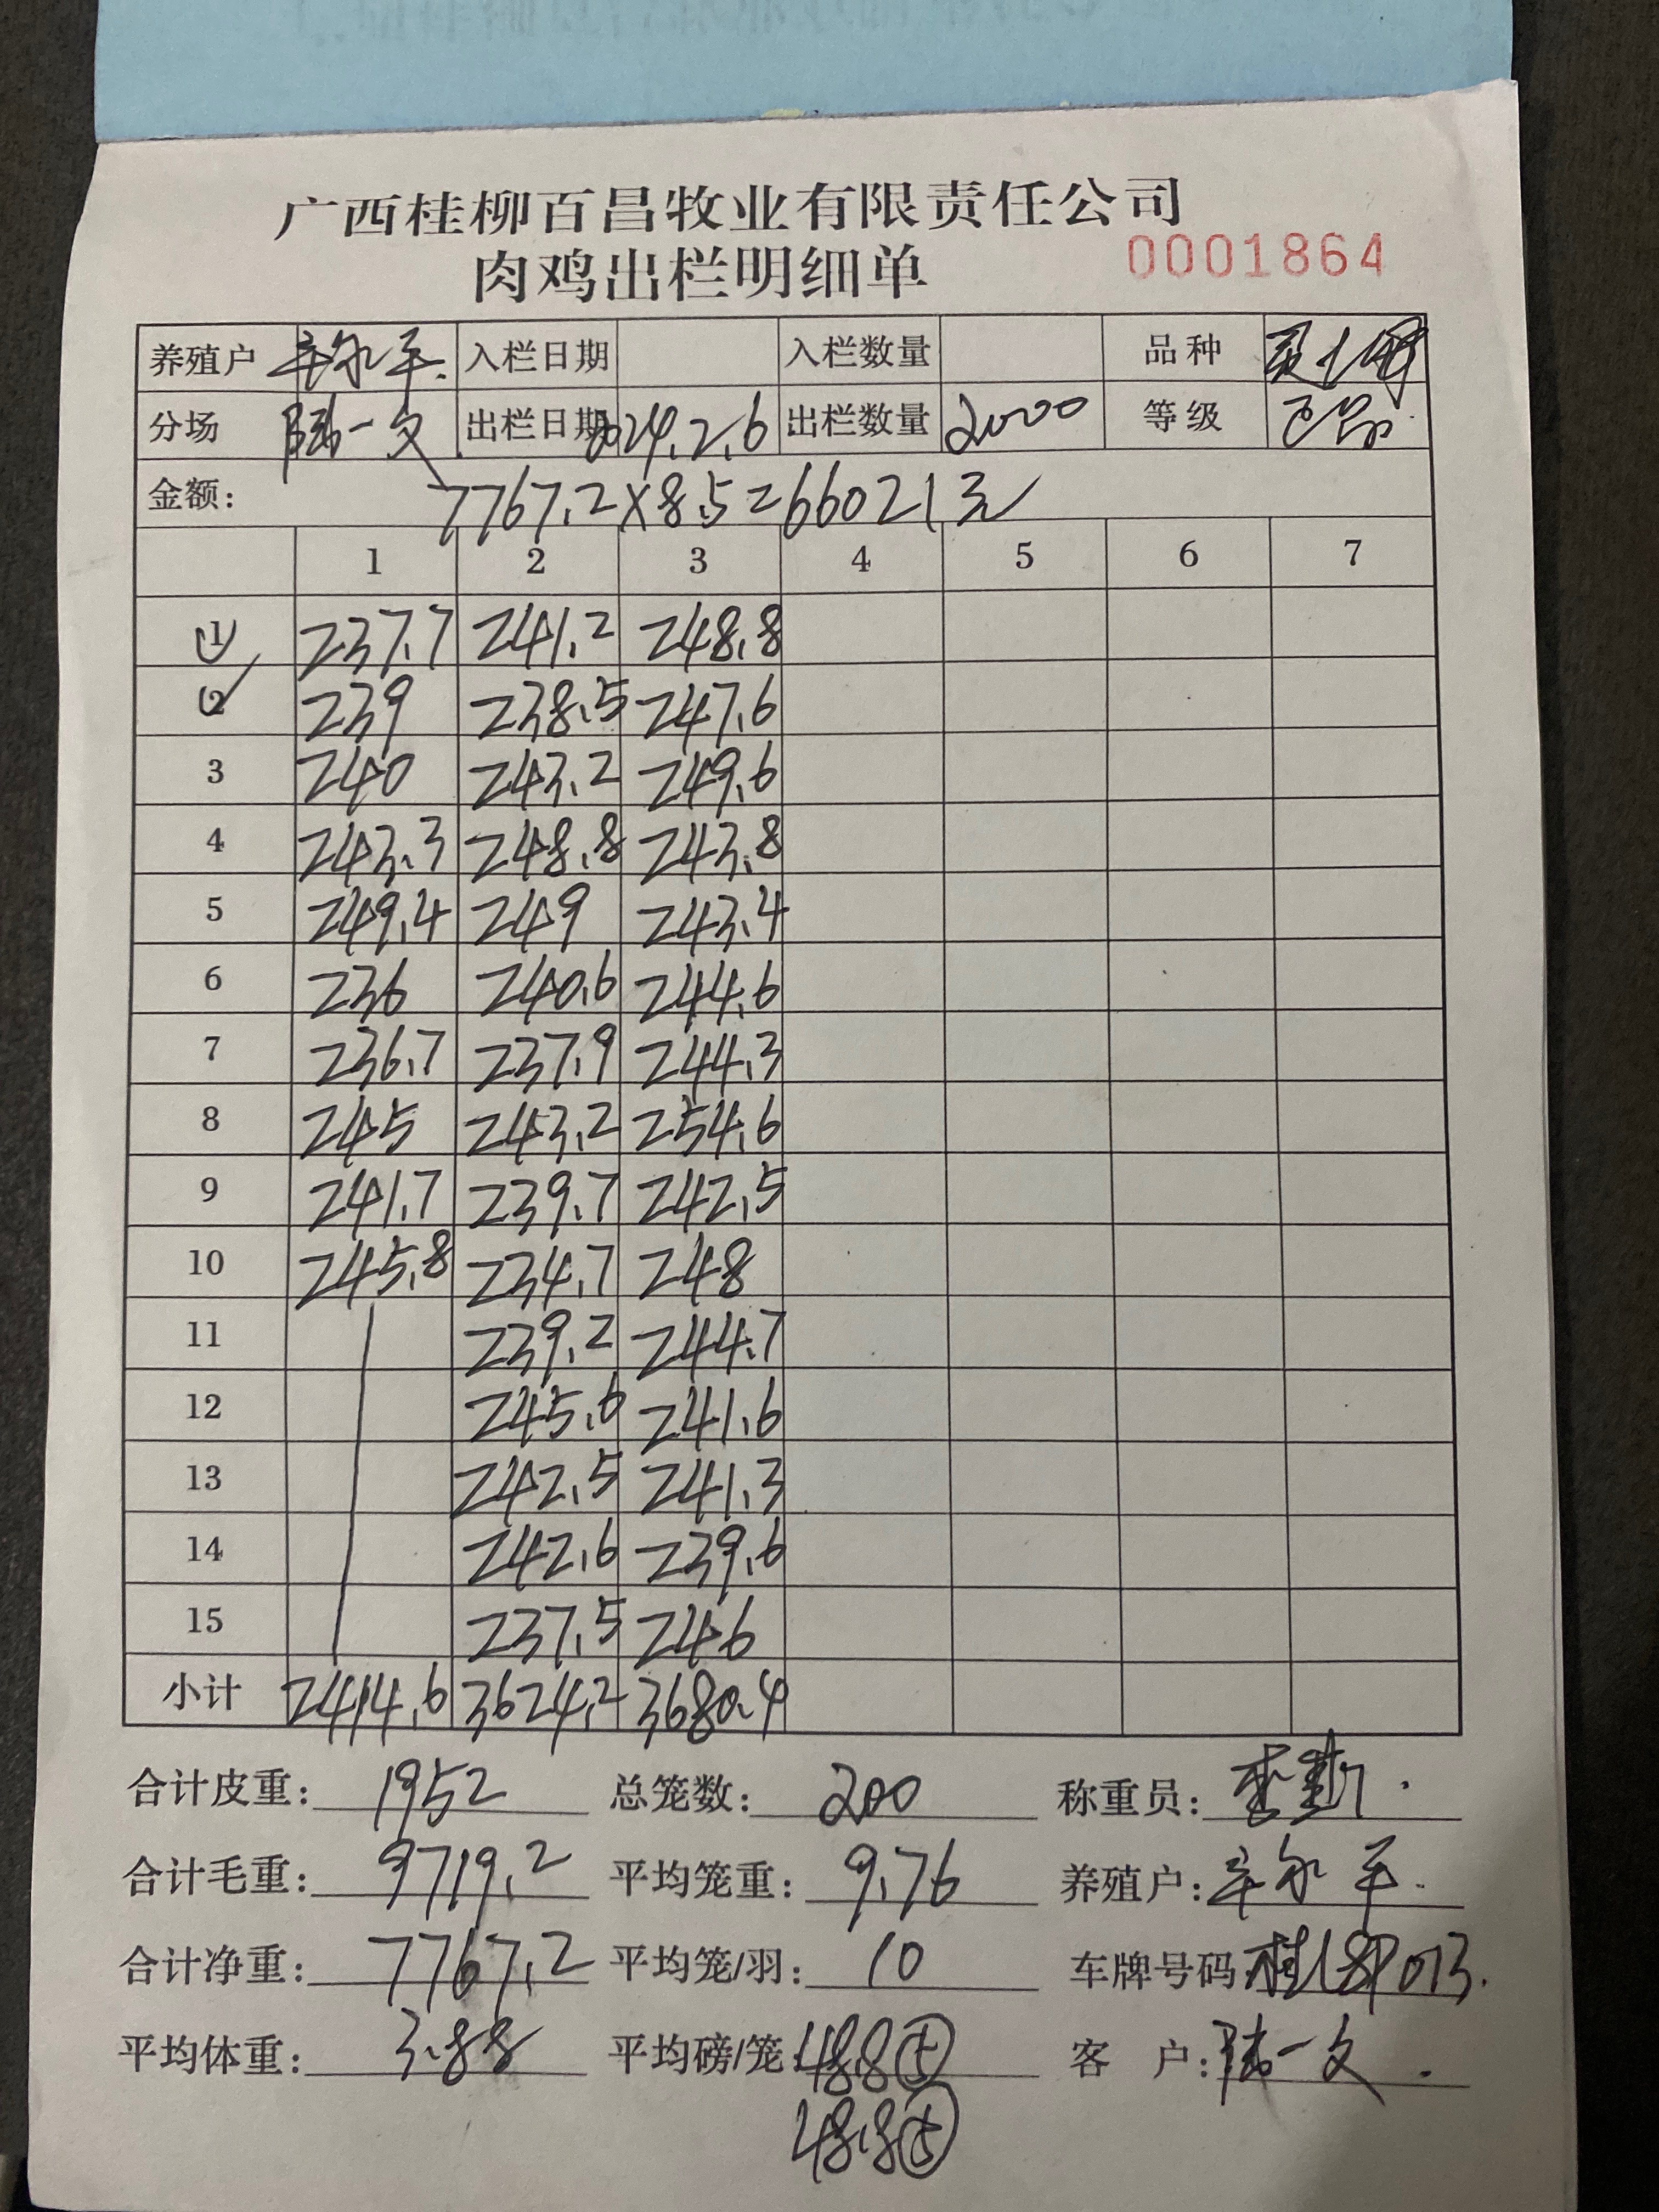 广西桂柳百昌牧业有限责任公司
肉鸡出栏明细单 0001864
养殖户 入栏日期 入栏数量 品种
分场 陆一文 出栏日期 2024.2.6 出栏数量 2000 等级
金额: 7767.2×8.5=66021元
1 2 3 4 5 6 7
1 237.7 241.2 248.8
2 239 238.5 247.6
3 240 243.2 249.6
4 243.3 248.8 243.8
5 249.4 249 243.4
6 236 240.6 244.6
7 236.7 237.9 244.3
8 245 243.2 254.6
9 241.7 239.7 242.5
10 245.8 234.7 248
11 239.2 244.7
12 245.6 241.6
13 242.5 241.3
14 242.6 239.6
15 237.5 246
小计 2414.6 3624.2 3680.4
合计皮重: 1952 总笼数: 200 称重员:
合计毛重: 9719.2 平均笼重: 9.76 养殖户:
合计净重: 7767.2 平均笼/羽: 10 车牌号码:
平均体重: 3.88 平均磅/笼: 48.8⑤ 客 户: 陆一文
48.8⑤